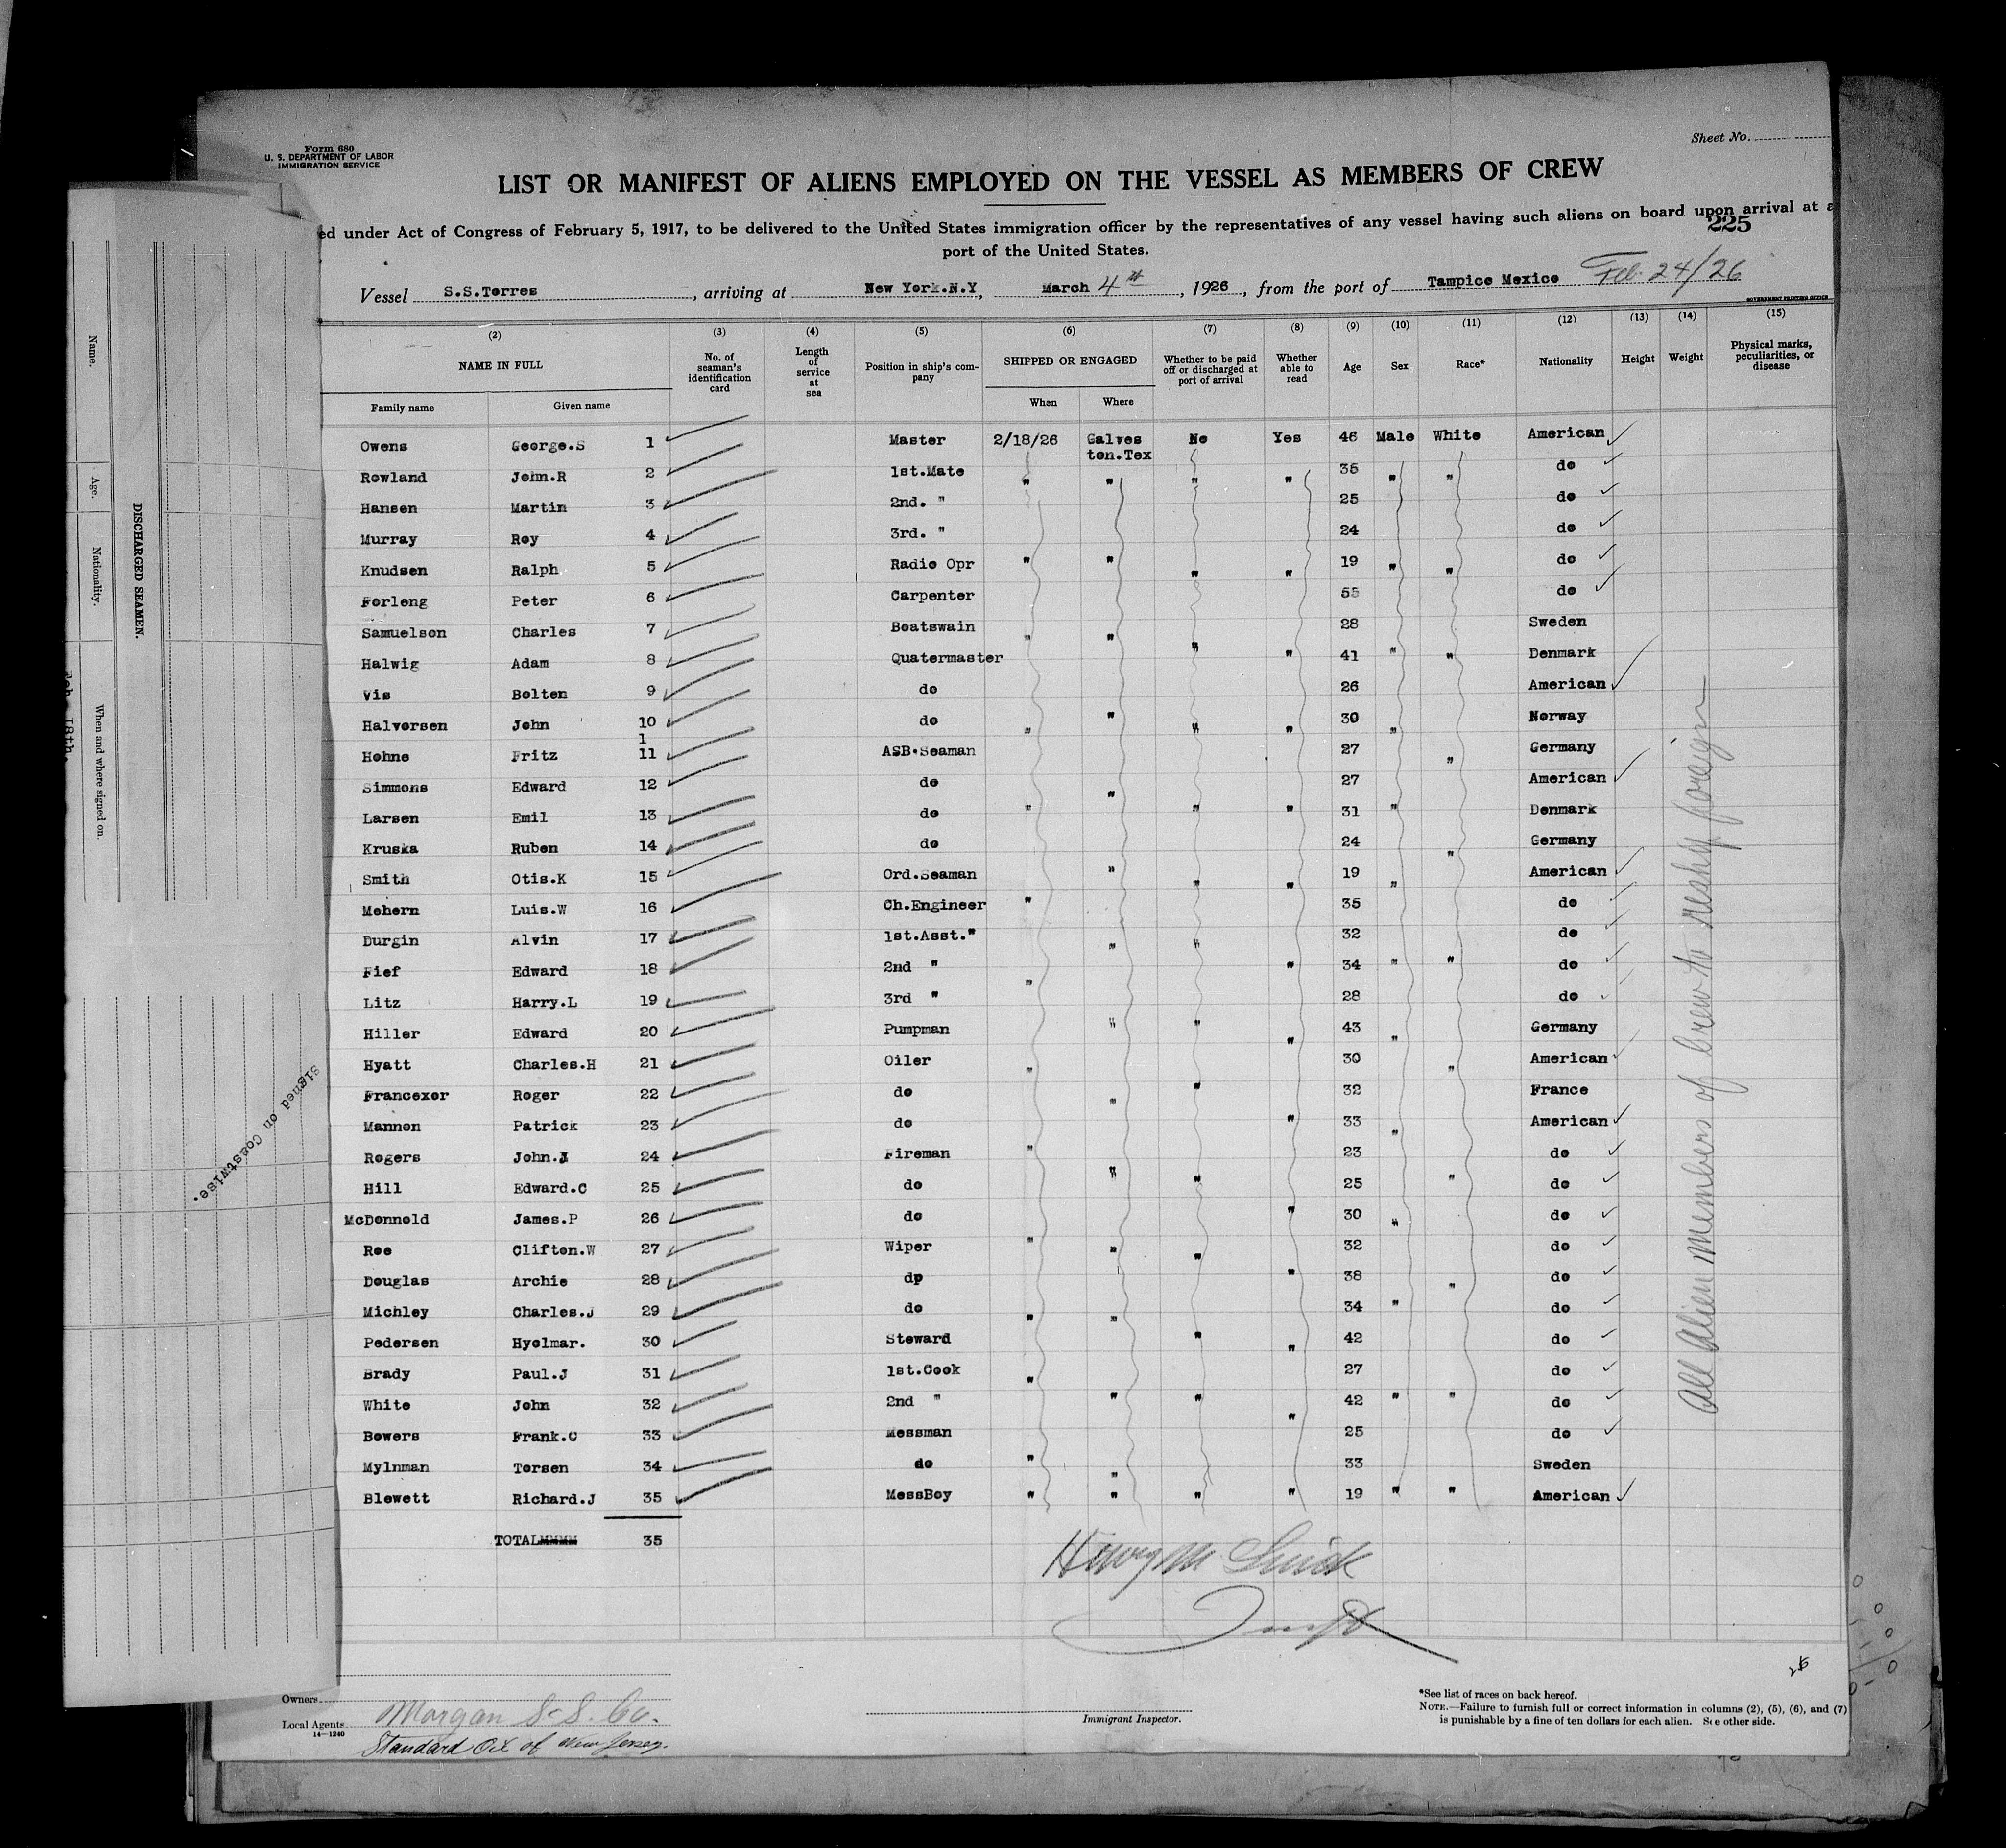 Form 680
U. S. DEPARTMENT OF LABOR
IMMIGRATION SERVICE
Sheet No.
LIST OR MANIFEST OF ALIENS EMPLOYED ON THE VESSEL AS MEMBERS OF CREW
ed under Act of Congress of February 5, 1917, to be delivered to the United States immigration officer by the representatives of any vessel having such aliens on board upon arrival at a
225
port of the United States.
Vessel S.S.Torres, arriving at New York.N.Y, March 4th, 1926, from the port of Tampico Mexico Feb. 24/26
GOVERNMENT PRINTING OFFICE
(2) (3) (4) (5) (6) (7) (8) (9) (10) (11) (12) (13) (14) (15)
NAME IN FULL No. of seaman's identification card Length of service at sea Position in ship's company SHIPPED OR ENGAGED Whether to be paid off or discharged at port of arrival Whether able to read Age Sex Race* Nationality Height Weight Physical marks, peculiarities, or disease
Family name Given name When Where
Owens George.S 1 Master 2/18/26 Galves ton.Tex No Yes 46 Male White American
Rowland John.R 2 1st.Mate " " " " 35 " " do
Hansen Martin 3 2nd. " 25 do
Murray Roy 4 3rd. " 24 do
Knudsen Ralph 5 Radio Opr " " " " 19 " " do
Forleng Peter 6 Carpenter 55 do
Samuelson Charles 7 Boatswain " " " 28 Sweden
Halwig Adam 8 Quatermaster " 41 " " Denmark
Vis Bolten 9 do 26 American
Halvorsen John 10 do " " " " 30 " Norway
1
Hohne Fritz 11 ASB.Seaman 27 " Germany
Simmons Edward 12 do " 27 American
Larsen Emil 13 do " " " 31 " Denmark
Kruska Ruben 14 do 24 " Germany
Smith Otis.K 15 Ord.Seaman " " " 19 " American
Mehern Luis.W 16 Ch.Engineer " 35 do
Durgin Alvin 17 1st.Asst." " " 32 do
Fief Edward 18 2nd " " 34 " " do
Litz Harry.L 19 3rd " " 28 do
Hiller Edward 20 Pumpman " " " 43 " Germany
Hyatt Charles.H 21 Oiler " 30 " American
Francexor Roger 22 do " " 32 France
Mannon Patrick 23 do " 33 " American
Rogers John.J 24 Fireman " 23 do
Hill Edward.C 25 do " " 25 " do
McDonnold James.P 26 do " 30 " do
Roe Clifton.W 27 Wiper " " " 32 do
Douglas Archie 28 dp " 38 " do
Michley Charles.J 29 do " " 34 " do
Pedersen Hyolmar. 30 Steward " " 42 do
Brady Paul.J 31 1st.Cook " 27 do
White John 32 2nd " " " 42 " " do
Bowers Frank.C 33 Messman " 25 do
Mylnman Torsen 34 do " " 33 Sweden
Blewett Richard.J 35 MessBoy " " " " 19 " " American
TOTAL 35
All Alien Members of Crew to reship foreign
Owners
Local Agents Morgan S.S. Co.
14—1240
Standard Oil of New Jersey.
Immigrant Inspector.
*See list of races on back hereof.
NOTE.—Failure to furnish full or correct information in columns (2), (5), (6), and (7)
is punishable by a fine of ten dollars for each alien. See other side.
DISCHARGED SEAMEN.
Name. Age. Nationality. When and where signed on.
Signed on Coastwise.